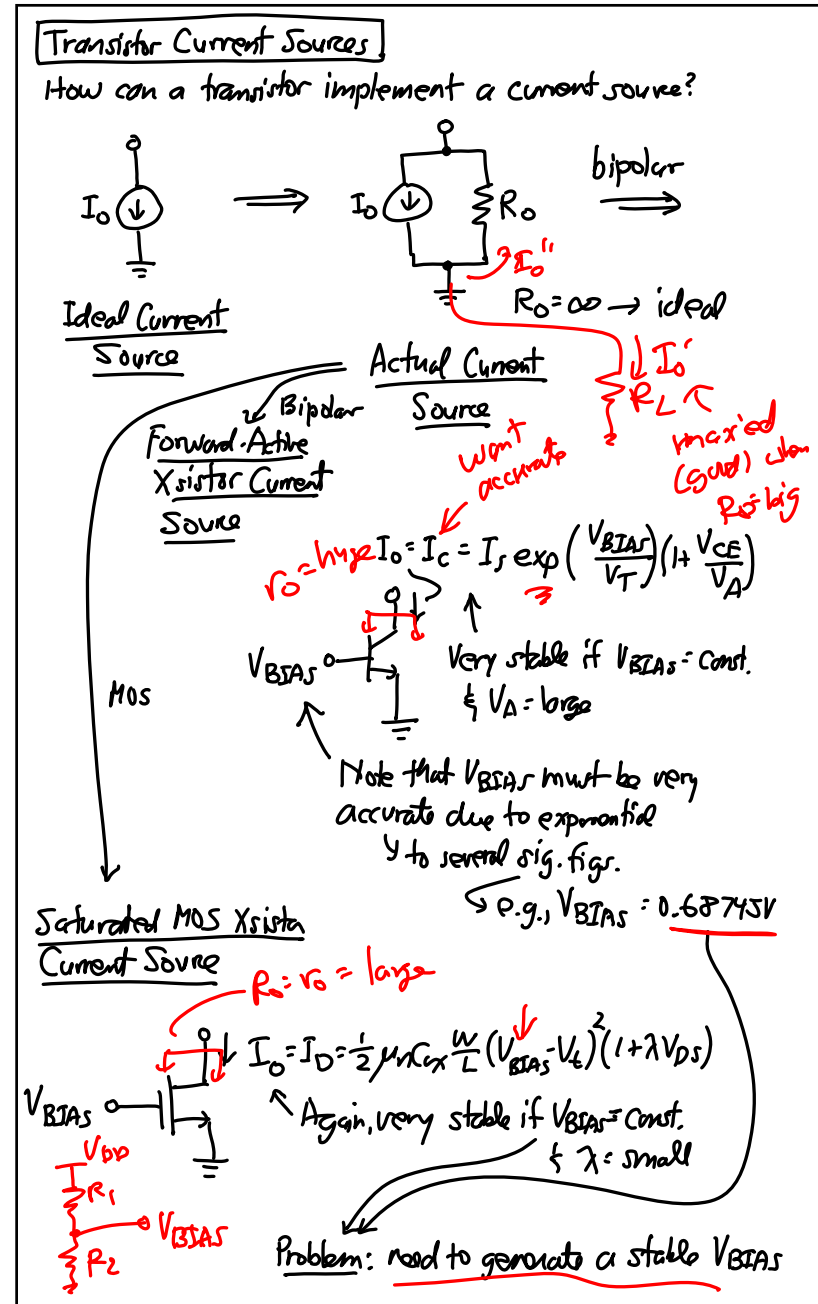 Transistor Current Sources
How can a transistor implement a current source?
I₀
I₀
R₀
bipolar
I₀''
R₀=∞ → ideal
Ideal Current
Source
Actual Current
Source
I₀'
R_L
max'ed
(good) when
R₀=big
Bipolar
Forward-Active
Xsistor Current
Source
want
accurate
r₀=huge
I₀=I_C = I_S exp(V_BIAS/V_T)(1+V_CE/V_A)
V_BIAS
Very stable if V_BIAS = Const.
& V_A = large
MOS
Note that V_BIAS must be very
accurate due to exponential
to several sig. figs.
e.g., V_BIAS = 0.68745V
Saturated MOS Xsistor
Current Source
R₀=r₀ = large
I₀=I_D=½ μₙCₒₓ W/L (V_BIAS-V_t)²(1+λV_DS)
V_BIAS
Again, very stable if V_BIAS=Const.
& λ= small
V_DD
R₁
V_BIAS
R₂
Problem: need to generate a stable V_BIAS